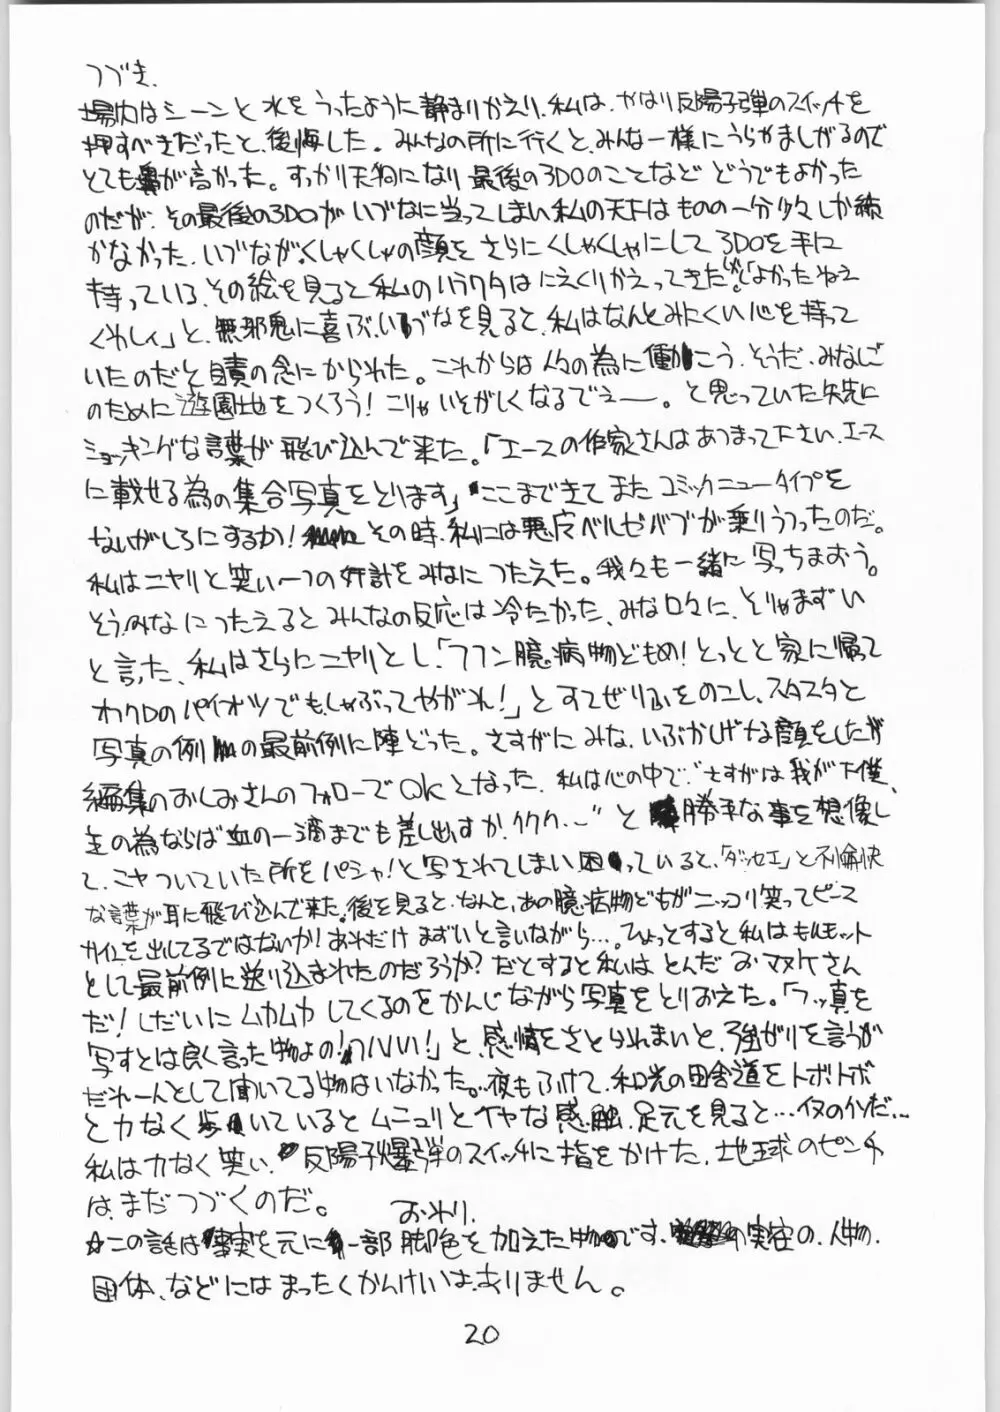 つづき、
場内はシーンと水をうったように静まりかえり、私は、やはり反陽子弾のスイッチを
押すべきだったと、後悔した。みんなの所に行くと、みんな一様にうらやましがるので
とても鼻が高かった。すっかり天狗になり最後の3DOのことなどどうでもよかった
のだが、その最後の3DOがいづなに当ってしまい私の天下はものの一分少々しか続
かなかった。いづながくしゃくしゃの顔をさらにくしゃくしゃにして3DOを手に
持っている、その絵を見ると私のハラワタはにえくりかえってきたが「よかったねえ
くわしィ」と、無邪鬼に喜ぶ、いづなを見ると、私はなんとみにくい心を持って
いたのだと自責の念にかられた。これからは人々の為に働こう、そうだ、みなしご
のために遊園地をつくろう！こりゃいそがしくなるでぇー。と思っていた矢先に
ショッキングな言葉が飛び込んで来た。「エースの作家さんはあつまって下さい、エース
に載せる為の集合写真をとります」ここまできてまたコミックニュータイプを
ないがしろにするか！その時、私には悪魔ベルゼバブが乗りうつったのだ。
私はニヤリと笑い一つの奸計をみなにつたえた。我々も一緒に写っちまおう。
そう、みなにつたえるとみんなの反応は冷たかった、みな口々に、そりゃまずい
と言った、私はさらにニヤリとし、「フフン臆病物どもめ！とっとと家に帰って
オフクロのパイオツでも、しゃぶってやがれ！」とすてぜりふをのこし、スタスタと
写真の例の最前例に陣どった。さすがにみな、いぶかしげな顔をしたが
編集のおしみさんのフォローでOKとなった、私は心の中で、"さすがは我が下僕、
主の為ならば血の一滴までも差し出すか、ククク…"と勝手な事を想像し
て、ニヤついていた所をパシャ！と写されてしまい困っていると、「ダッセエ」と不愉快
な言葉が耳に飛び込んで来た。後を見ると、なんと、あの臆病物どもがニッコリ笑ってピース
サインを出してるではないか！あれだけまずいと言いながら…。ひょっとすると私はモルモット
として最前例に送り込まれたのだろうか？だとすると私はとんだおマヌケさん
だ！しだいにムカムカしてくるのをかんじながら写真をとりおえた。「フッ真を
写すとは良く言った物よの！ハハハ！」と、感情をさとられまいと、強がりを言うが
だれ一人として聞いてる物はいなかった。夜もふけて、和光の田舎道をトボトボ
と力なく歩いているとムニュリとイヤな感触、足元を見ると…イヌのクソだ…
私は力なく笑い、反陽子爆弾のスイッチに指をかけた、地球のピンチ
は、まだつづくのだ。
おわり、
☆この話は事実を元に一部脚色を加えた物です、実在の、人物、
団体、などにはまったくかんけいは、ありません。
20